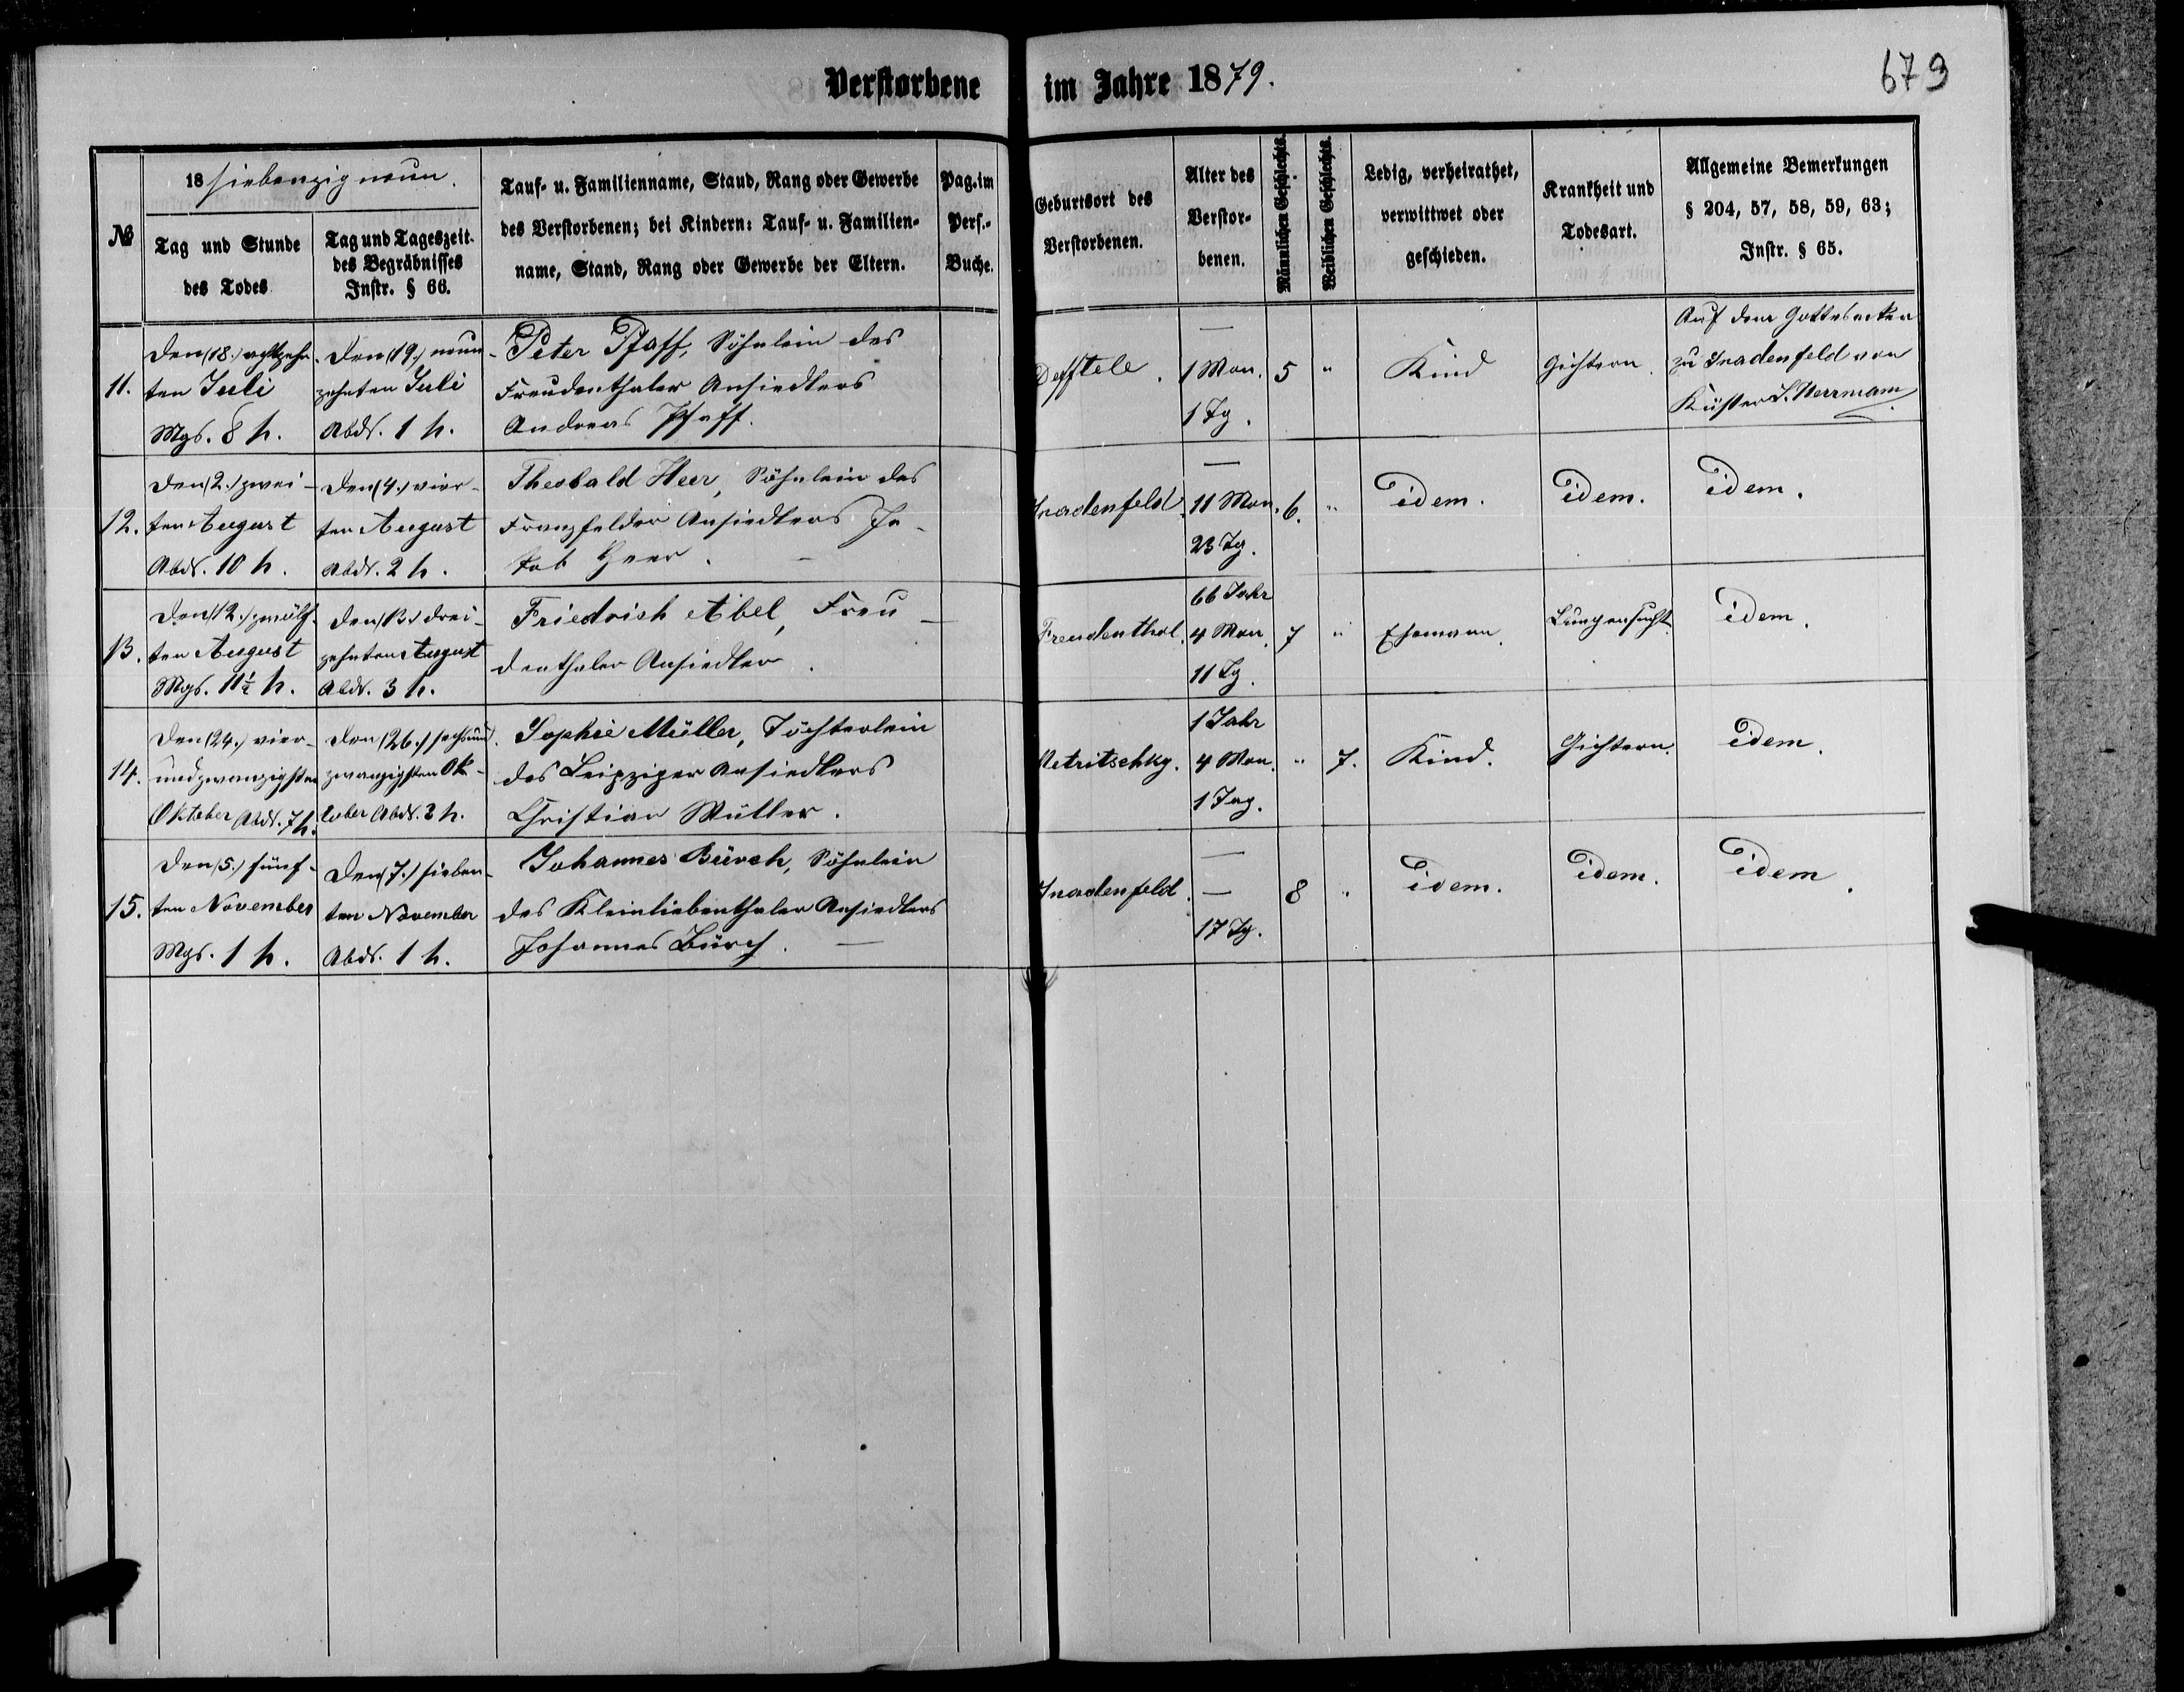 Verstorbene im Jahre 1879.
679
№
18 siebenzig neun.
Tag und Stunde
des Todes
Tag und Tageszeit
des Begräbnisses
Instr. § 66.
Tauf- u. Familienname, Stand, Rang oder Gewerbe
des Verstorbenen; bei Kindern: Tauf- u. Familien-
name, Stand, Rang oder Gewerbe der Eltern.
Pag. im
Pers.-
Buche.
Geburtsort des
Verstorbenen.
Alter des
Verstor-
benen.
Männlichen Geschlechts.
Weiblichen Geschlechts.
Ledig, verheirathet,
verwittwet oder
geschieden.
Krankheit und
Todesart.
Allgemeine Bemerkungen
§ 204, 57, 58, 59, 63;
Instr. § 65.
11.
Den (18.) achtzehn-
ten Juli
Mgs. 8 h.
Den (19.) neun-
zehnten Juli
Abds. 1 h.
Peter Pfaff, Söhnlein des
Freudenthaler Ansiedlers
Andreas Pfaff.
Defftele.
—
1 Mon.
1 Tg.
5
"
Kind
Gichtern.
Auf dem Gottesacker
zu Gnadenfeld von
Küster L. Herrmann
12.
Den (2.) zwei-
ten August
Abds. 10 h.
Den (4.) vier-
ten August
Abds. 2 h.
Theobald Heer, Söhnlein des
Franzfelder Ansiedlers Ja-
kob Heer. —
Gnadenfeld.
—
11 Mon.
23 Tg.
6.
"
idem.
idem.
idem.
13.
Den (12.) zwölf-
ten August
Mgs. 11½ h.
Den (13.) drei-
zehnten August
Abds. 3 h.
Friedrich Abel, Freu-
denthaler Ansiedler.
Freudenthal.
66 Jahr
4 Mon.
11 Tg.
7
"
Ehemann.
Lungensucht.
idem.
14.
Den (24.) vier-
undzwanzigsten
Oktober Abds. 7 h.
Den (26.) sechsund-
zwanzigsten Ok-
tober Abds. 3 h.
Sophie Müller, Töchterlein
des Leipziger Ansiedlers
Christian Müller.
Petritschky.
1 Jahr
4 Mon.
1 Tag.
"
7.
Kind.
Gichtern.
idem.
15.
Den (5.) fünf-
ten November
Mgs. 1 h.
Den (7.) sieben-
ten November
Abds. 1 h.
Johannes Bürch, Söhnlein
des Kleinliebenthaler Ansiedlers
Johannes Bürch. —
Gnadenfeld.
—
—
17 Tg.
8
"
idem.
idem.
idem.